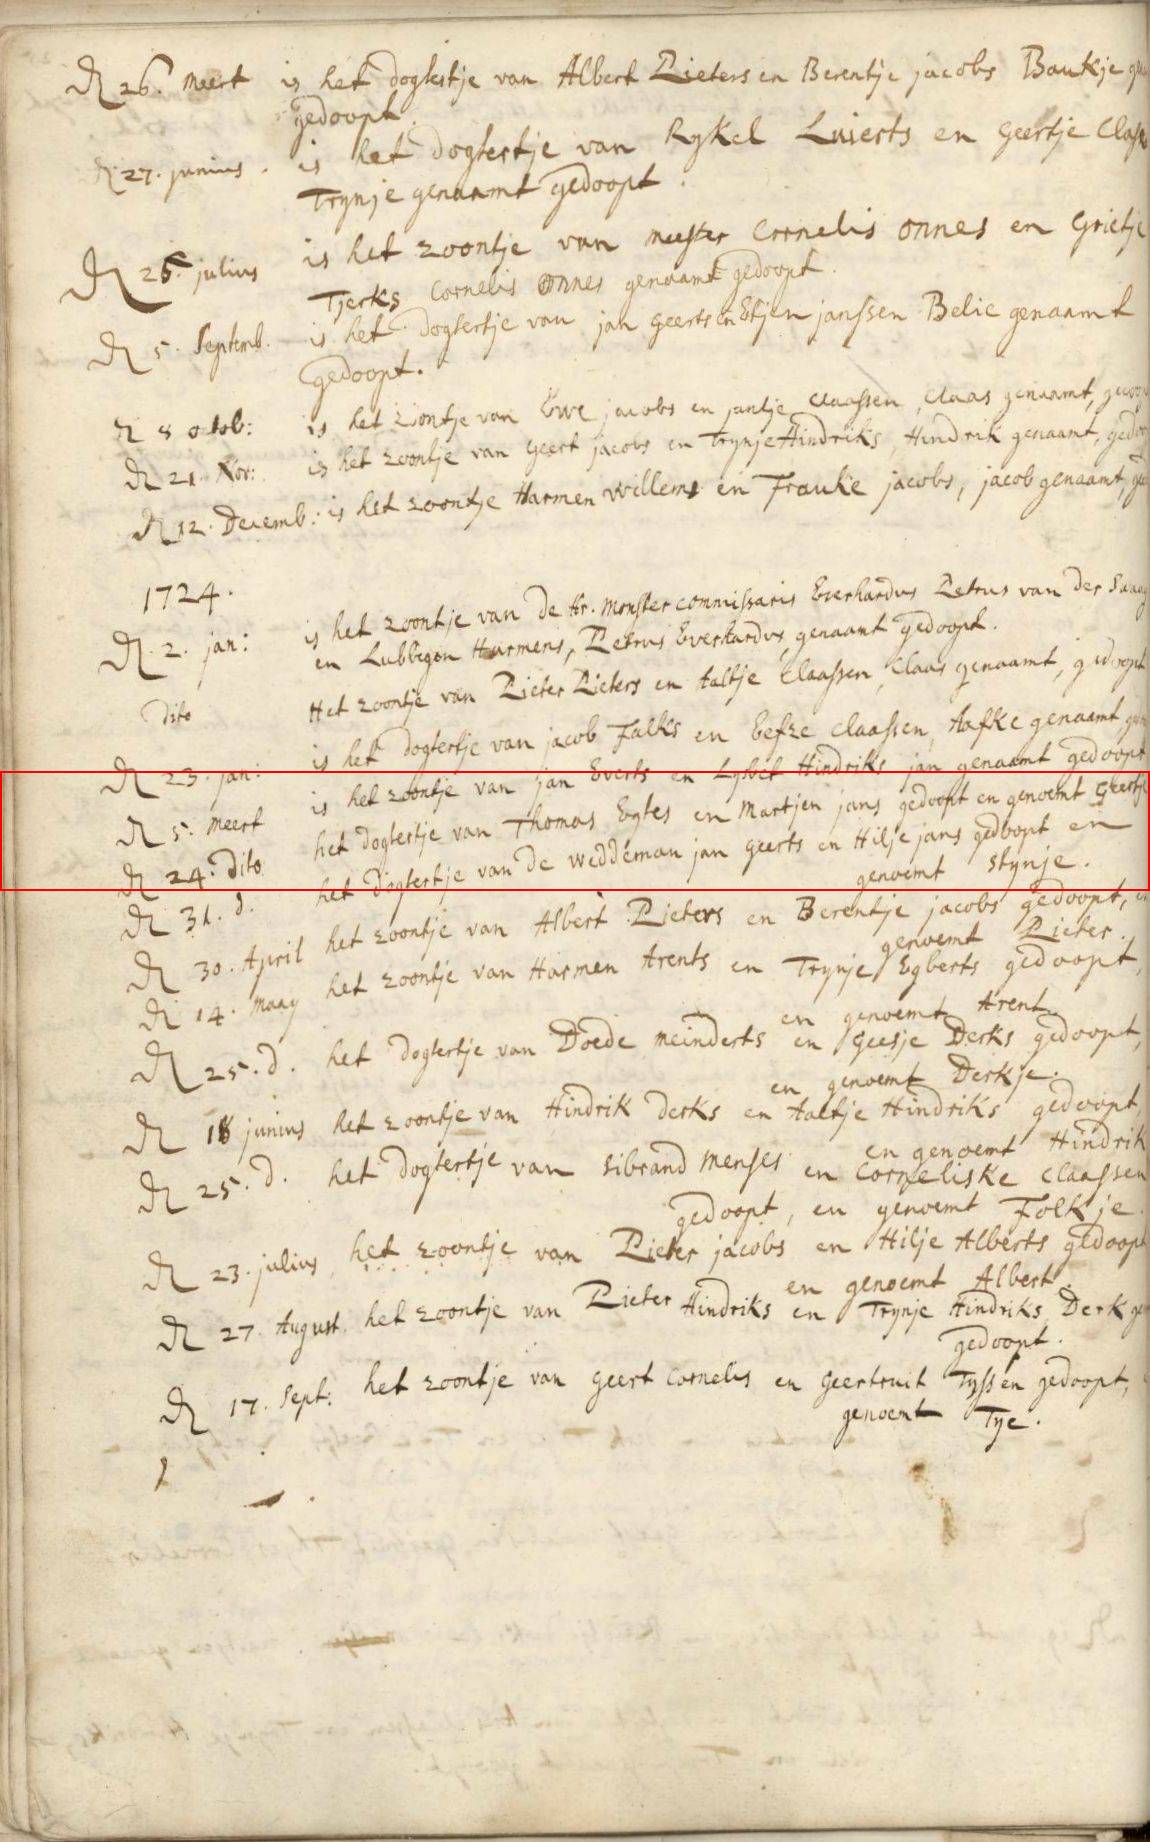 Dn 26. Meert is het dogtertje van Albert Pieters en Berentje jacobs Baukje
gedoopt.
Dn 27. junius. is het dogtertje van Rykel Luierts en Geertje
Trynje genaamt gedoopt.
Dn 25. julius is het zoontje van meester Cornelis onnes en Grietje
Tjerks Cornelis onnes genaamt gedoopt.
Dn 5. Septemb. is het dogtertje van jan Geerts en Etjen janssen Belie genaamt
gedoopt.
Dn 8 octob: is het zoontje van Ewe jacobs en jantje Claassen, Claas genaamt,
Dn 21. Nov: is het zoontje van Geert jacobs en Trynje Hindriks, Hindrik genaamt,
Dn 12. Decemb: is het zoontje Harmen Willems en Frauke jacobs, jacob genaamt,
1724.
Dn. 2. jan: is het zoontje van de Hr. Monster commissaris Everhardus Petrus van der
en Lubbegon Harmens, Petrus Everhardus, genaamt gedoopt.
Dito Het zoontje van Pieter Pieters en Aaltje Claassen, Claas genaamt, gedoopt
Dn 23. jan: is het dogtertje van jacob Falks en Eefze Claassen, Aafke genaamt,
Dn 5. Meert is het zoontje van jan Everts en Lysbet Hindriks jan genaamt gedoopt
Dn 24. Dito het dogtertje van Thomas Egtes en Martjen jans gedoopt en genoemt Geertje
Dn 31. d. het dogtertje van de weddeman jan Geerts en Hilje jans gedoopt en
genoemt Stynje.
Dn 30. April het zoontje van Albert Pieters en Berentje jacobs gedoopt,
genoemt Pieter.
Dn 14. Maay het zoontje van Harmen Arents en Trynje Egberts gedoopt,
en genoemt Arent.
Dn 25. d. het dogtertje van Doede meinderts en Geesje Derks gedoopt,
en genoemt Derkje.
Dn 18 junius het zoontje van Hindrik derks en Aaltje Hindriks gedoopt,
en genoemt Hindrik
Dn 25. d. het dogtertje van Sibrand Menses en Corneliske Claassen
gedoopt, en genoemt Folkje.
Dn 23. julius het zoontje van Pieter jacobs en Hilje Alberts gedoopt
en genoemt Albert.
Dn 27. August. het zoontje van Pieter Hindriks en Trynje Hindriks Derk
gedoopt.
Dn 17. Sept: het zoontje van Geert Cornelis en Geertruit Tyssen gedoopt,
genoemt Tye.